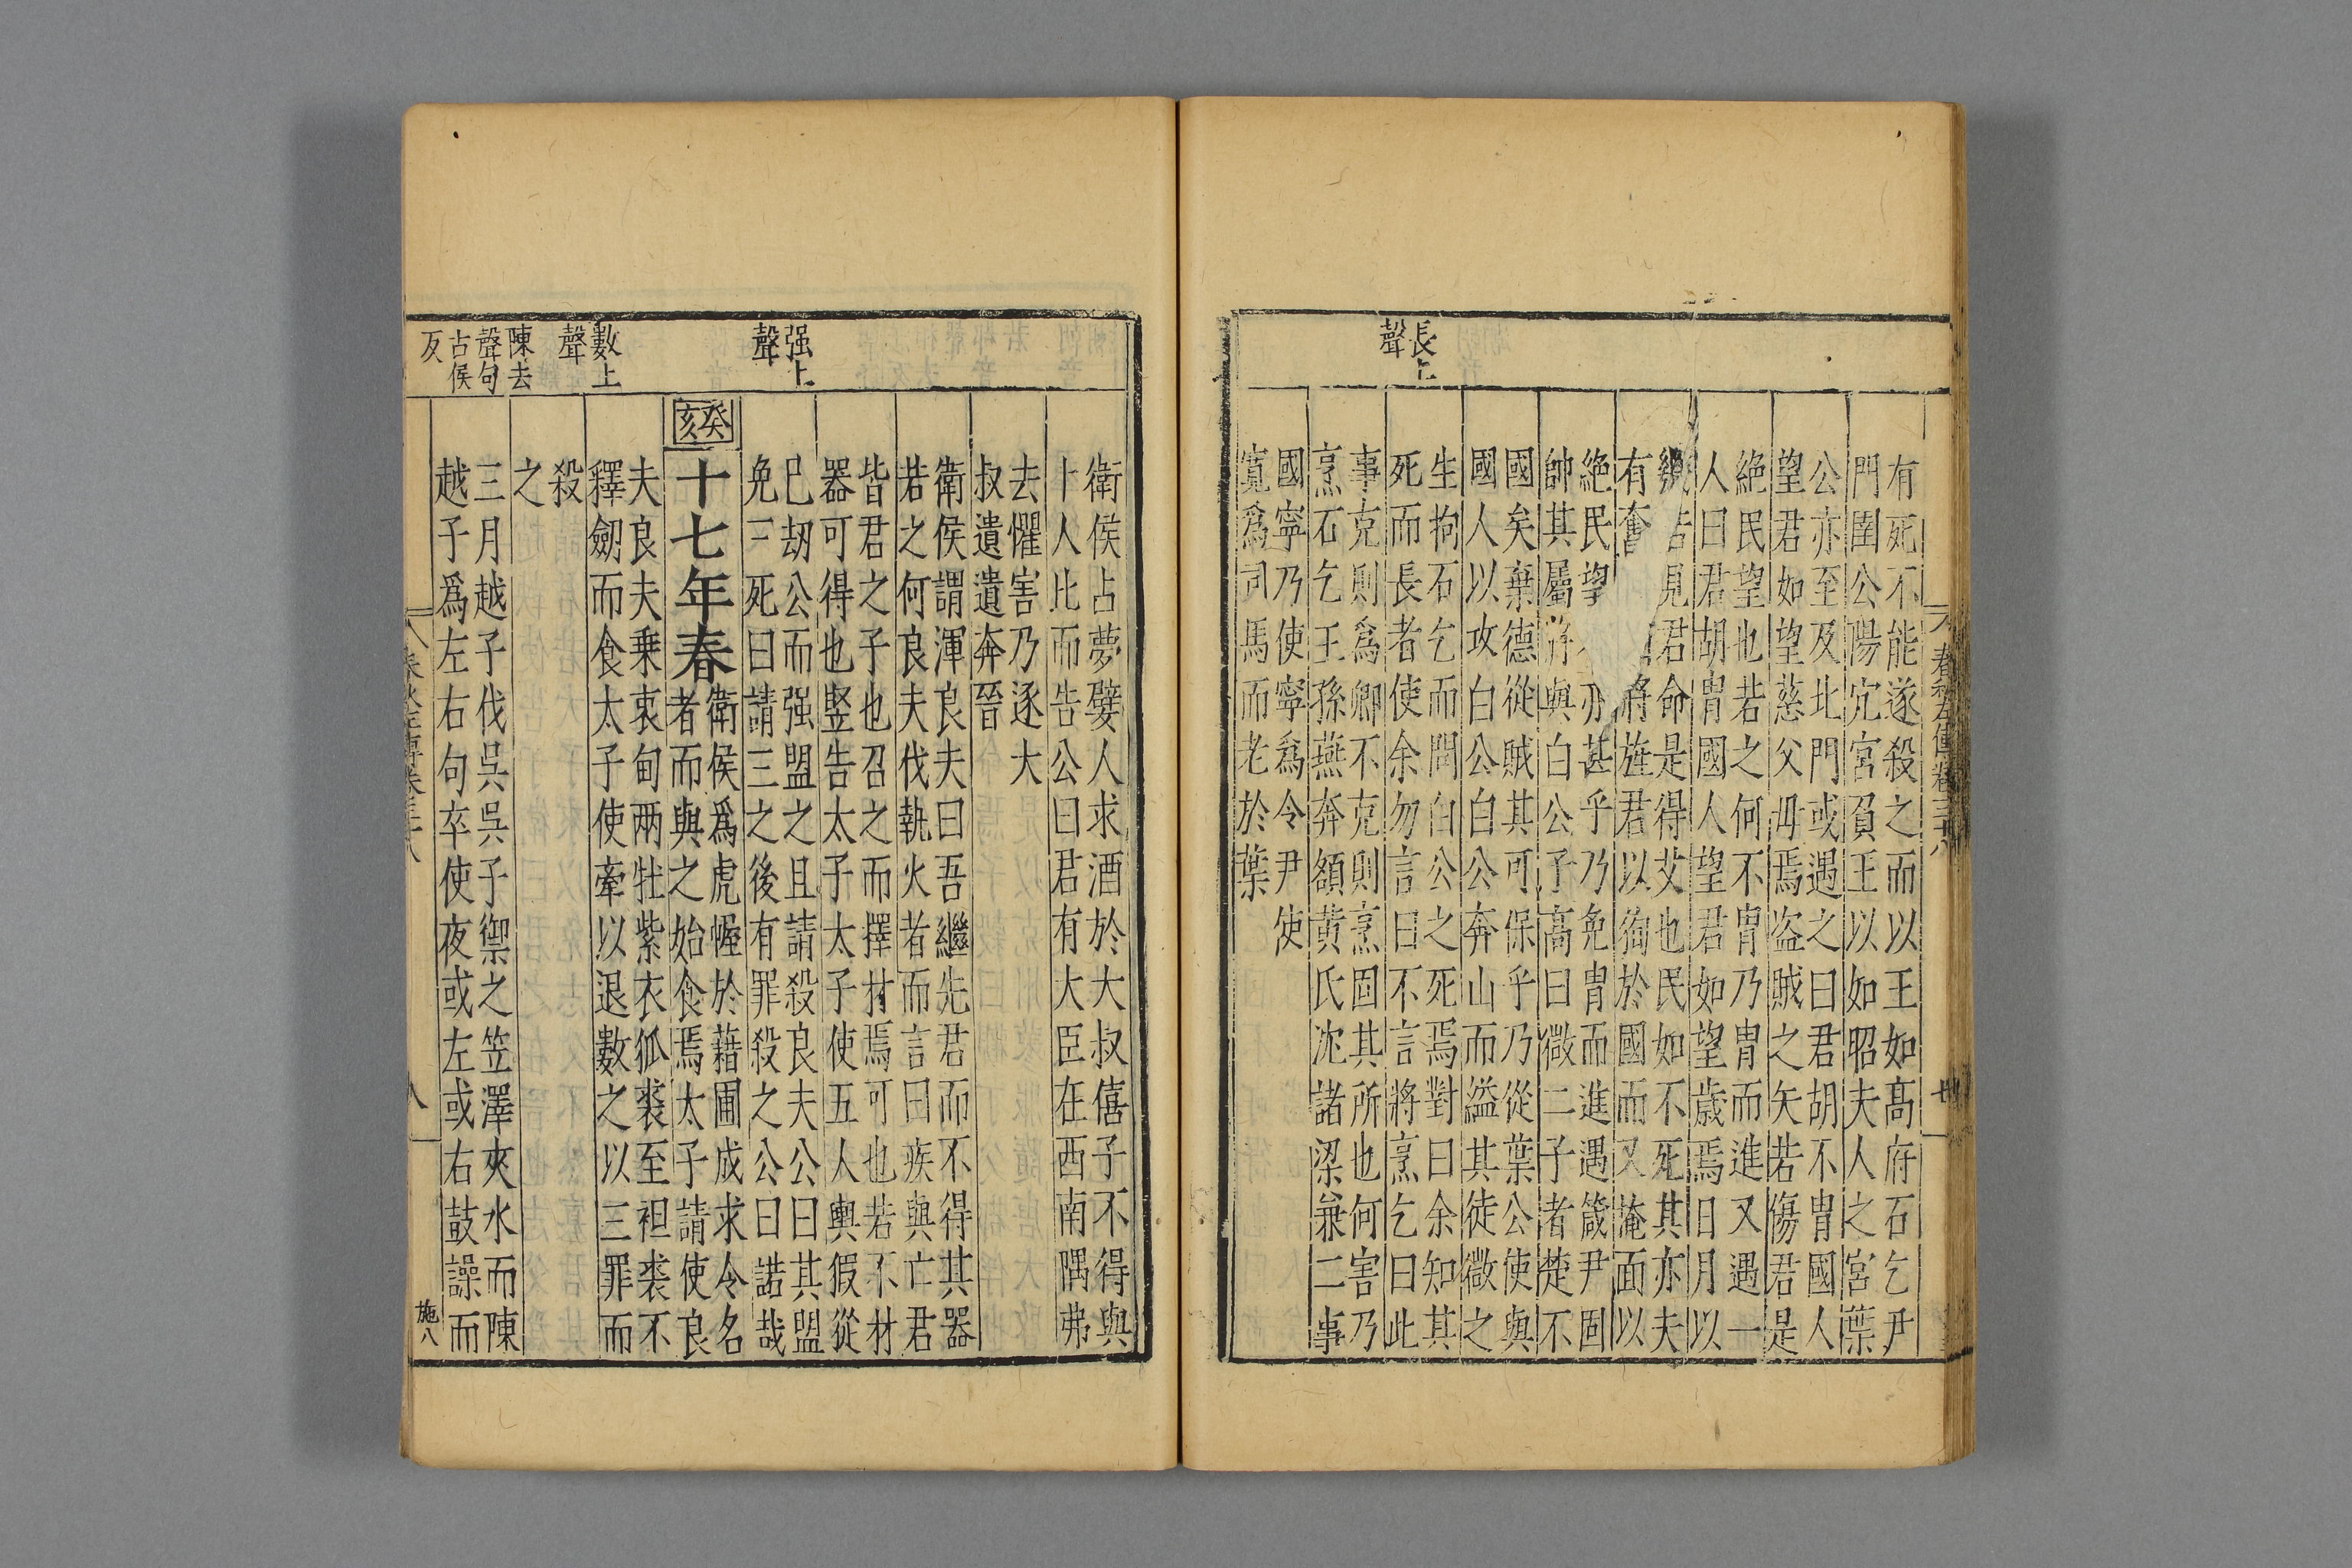 長上
聲
春秋左傳卷三十八
有死不能遂殺之而以王如髙府石乞尹
門圉公陽宂宮負王以如昭夫人之宮葉
公亦至及北門或遇之曰君胡不胄國人
望君如望慈父母焉盗賊之矢若傷君是
絶民望也若之何不胄乃胄而進又遇一
人曰君胡胄國人望君如望歲焉日月以
見君命是得艾也民如不死其亦夫
有奮將旌君以徇於國而又掩面以
絶民望亦甚乎乃免胄而進遇箴尹固
帥其屬將與白公子髙曰微二子者楚不
國矣棄德從賊其可保乎乃從葉公使與
國人以攻白公白公奔山而縊其徒微之
生拘石乞而問白公之死焉對曰余知其
死而長者使余勿言曰不言將烹乞曰此
事克則爲卿不克則烹固其所也何害乃
烹石乞王孫燕奔頟黄氏沈諸梁兼二事
國寧乃使寧爲令尹使
寛爲司馬而老於葉
强上
聲
數上
聲
陳去
聲句
古侯
反
衛侯占夢嬖人求酒於大叔僖子不得與
卜人比而告公曰君有大臣在西南隅弗
去懼害乃逐大
叔遺遺奔晉
衛侯謂渾良夫曰吾繼先君而不得其器
若之何良夫伐執火者而言曰疾與亡君
皆君之子也召之而擇材焉可也若不材
器可得也竪告太子太子使五人輿猳從
已劫公而强盟之且請殺良夫公曰其盟
免三死曰請三之後有罪殺之公曰諾哉
癸亥
十七年春
衛侯爲虎幄於藉圃成求令名
者而與之始食焉太子請使良
夫良夫乗衷甸兩牡紫衣狐裘至袒裘不
釋劒而食太子使牽以退數之以三罪而
殺
之
三月越子伐吳吳子禦之笠澤夾水而陳
越子爲左右句卒使夜或左或右鼓譟而
春秋左傳卷三十八
八
施八